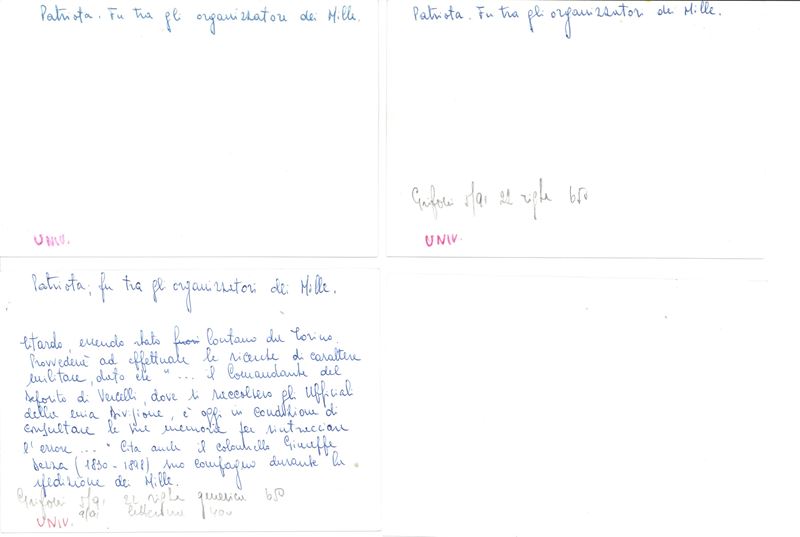 Patriota. Fu tra gli organizzatore dei Mille.
UNIV.
Patriota. Fu tra gli organizzatori dei Mille.
22 righe 650
UNIV.
Patriota, fu tra gli organizzatori dei Mille.
ritardo, essendo stato fuori lontano da Torino.
Provvederà ad effettuare le ricerche di carattere
militare, dato che "... il Comandante del
Deposito di Vercelli, dove si raccolsero gli Ufficiali
della mia Divisione, è oggi in condizione di
consultare le sue memorie per rintracciare
l'errore ... " Cita anche il colonnello Giuseppe
(1830 - 1898) suo compagno durante la
spedizione dei Mille.
22 righe generica 650
UNIV.